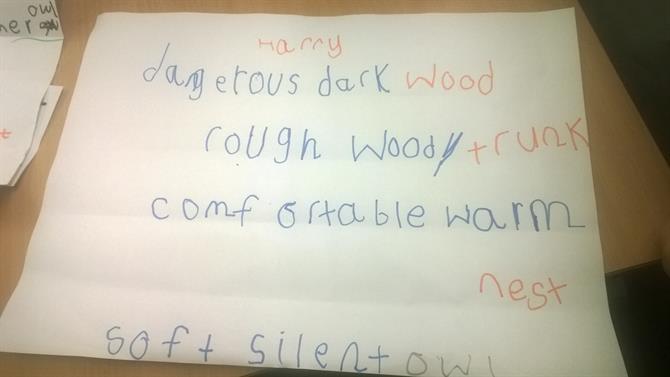 owl
her
Harry
dangerous dark wood
rough woody trunk
comfortable warm
nest
soft silent owl